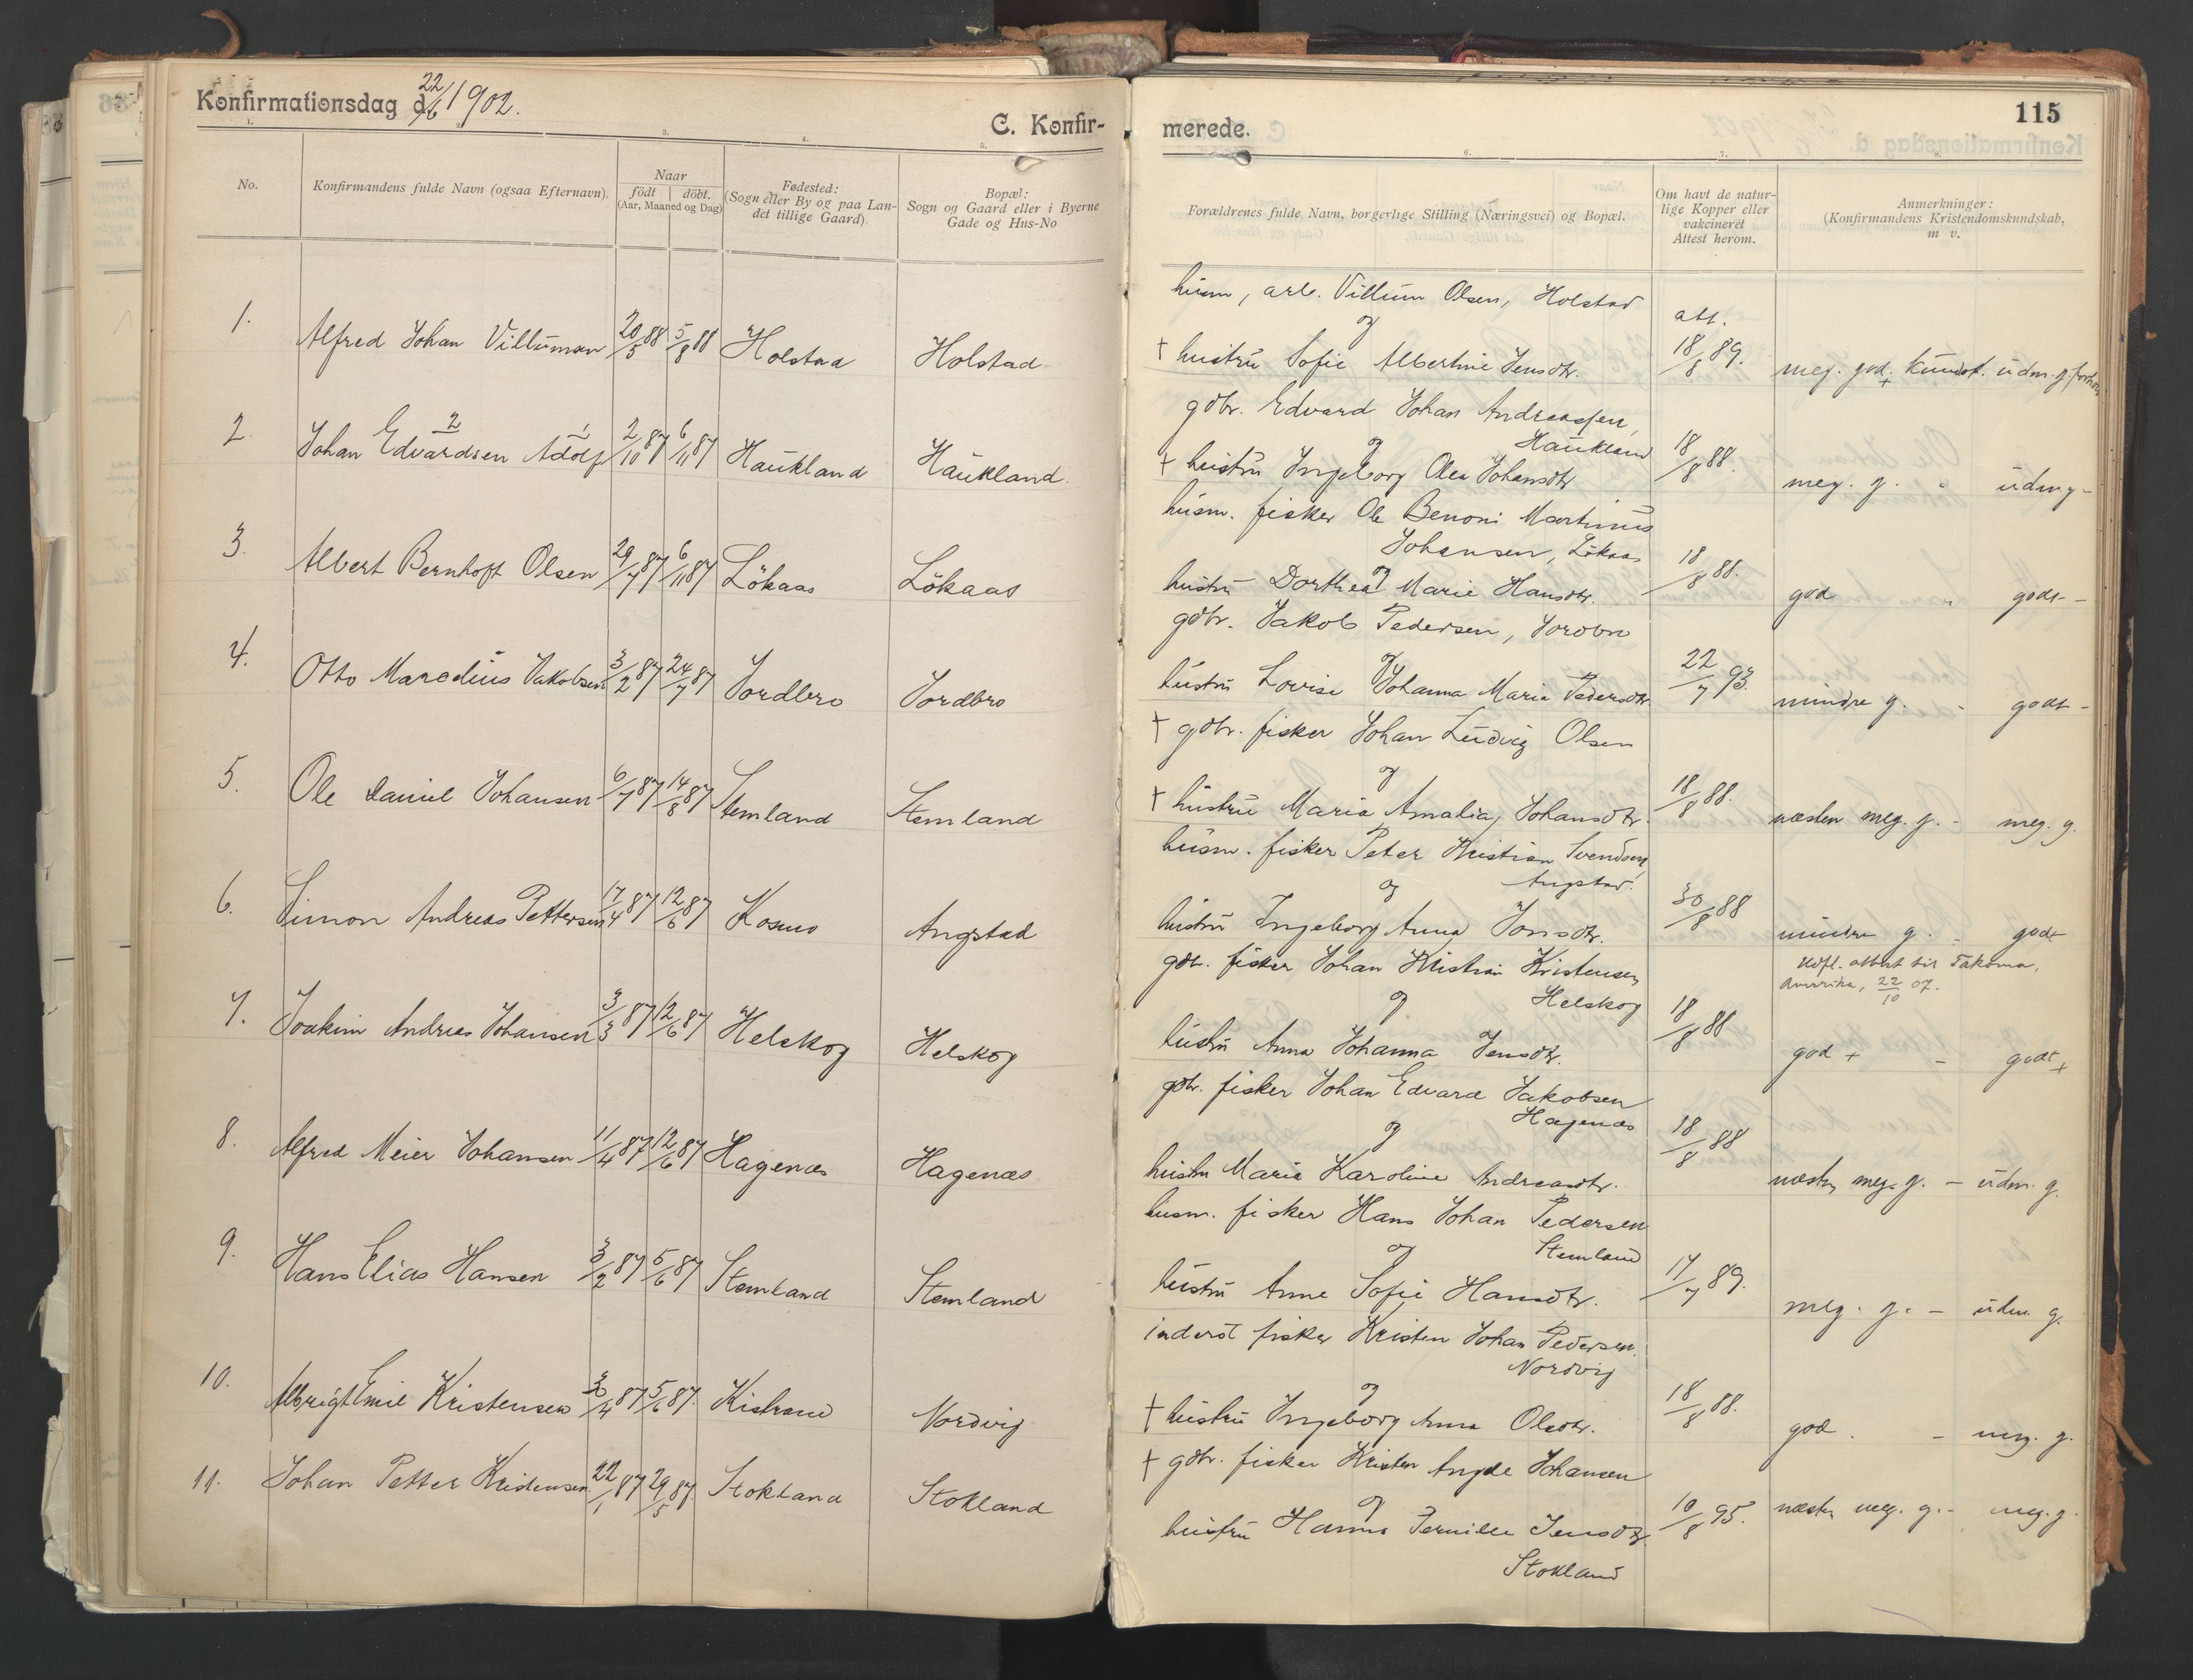 Konfirmationsdag d. 22/6 1902.
C. Konfir-
1. 2. 3. 4. 5.
No.
Konfirmandens fulde Navn (ogsaa Efternavn).
Naar
födt
döbt.
(Aar, Maaned og Dag)
Fødested:
(Sogn eller By og paa Lan-
det tillige Gaard).
Bopæl:
Sogn og Gaard eller i Byerne
Gade og Hus-No
1. Alfred Johan Villumsen 20/5 88 5/8 88 Holstad Holstad
2. Johan Edvardsen Adolf 2/10 87 6/11 87 Haukland Haukland.
2 1
3. Albert Bernhoft Olsen 29/7 87 6/11 87 Lökaas Lökaas
4. Otto Marcelius Jakobsen 3/2 87 24/7 87 Jordbro Jordbro
5. Ole Daniel Johansen 6/7 87 14/8 87 Stemland Stemland
6. Simon Andreas Pettersen 17/4 87 12/6 87 Kosmo Angstad
7. Joakim Andreas Johansen 3/3 87 12/6 87 Helskog Helskog
8. Alfred Meier Johansen 11/4 87 12/6 87 Hagenæs Hagenæs
9. Hans Elias Hansen 3/2 87 5/6 87 Stemland Stemland
10. Albrigt Emil Kristensen 87 5/6 87. Kistrand Nordvig
11. Johan Petter Kristensen 22/1 87 29/5 87. Stokland Stokland
115
merede.
6. 7.
Forældrenes fulde Navn, borgerlige Stilling (Næringsvei) og Bopæl.
Om havt de natur-
lige Kopper eller
vakcineret
Attest herom.
Anmerkninger:
(Konfirmandens Kristendomskundskab,
m v.
husm, arb. Villum Olsen, Holstad
og
att.
† hustru Sofie Albertine Jensdtr. 18/8 89. meg. god + kundsk. udm. g. forhold
gdbr. Edvard Johan Andreassen,
og Haukland
† hustru Ingeborg Olea Johansdtr 18/8 88. meg. g. - udm g -
husm. fisker Ole Benoni Martinus
Johansen, Lökaas
og
hustru Dorthea Marie Hansdtr. 18/8 88. god " godt -
gdbr. Jakob Pedersen, Jordbro
og
hustru Lovise Johanna Maria Pedersdtr 22/7 93. mindre g. - godt -
† gdbr. fisker Johan Ludvig Olsen
og
† hustru Maria Amalia Johansdtr. 18/8 88. næsten meg. g. - meg. g.
husm. fisker Peter Kristian Svendsen,
og Angstad.
hustru Ingeborg Anna Jonsdtr. 30/8 88 mindre g. - godt
gdbr. fisker Johan Kristian Kristensen
og Helskog
Udfl. attest til Takoma,
Amerika, 22/10 07.
hustru Anna Johanna Jensdtr. 18/8 88 god + - godt +
gdbr. fisker Johan Edvard Jakobsen
og Hagenæs
hustru Maria Karoline Andreasdtr. 18/8 88 næsten meg. g. - udm. g.
husm. fisker Hans Johan Pedersen
og Stemland
hustru Anne Sofie Hansdtr. 17/7 89. meg. g. - udm g.
inderst fisker Kristen Johan Pedersen.
Nordvig
og
† hustru Ingeborg Anna Olsdtr. 18/8 88. god. - meg. g.
† gdbr. fisker Kristen Angde Johansen
og
hustru Hanna Pernille Jensdtr 10/8 95. næsten meg. g. - meg. g.
Stokland